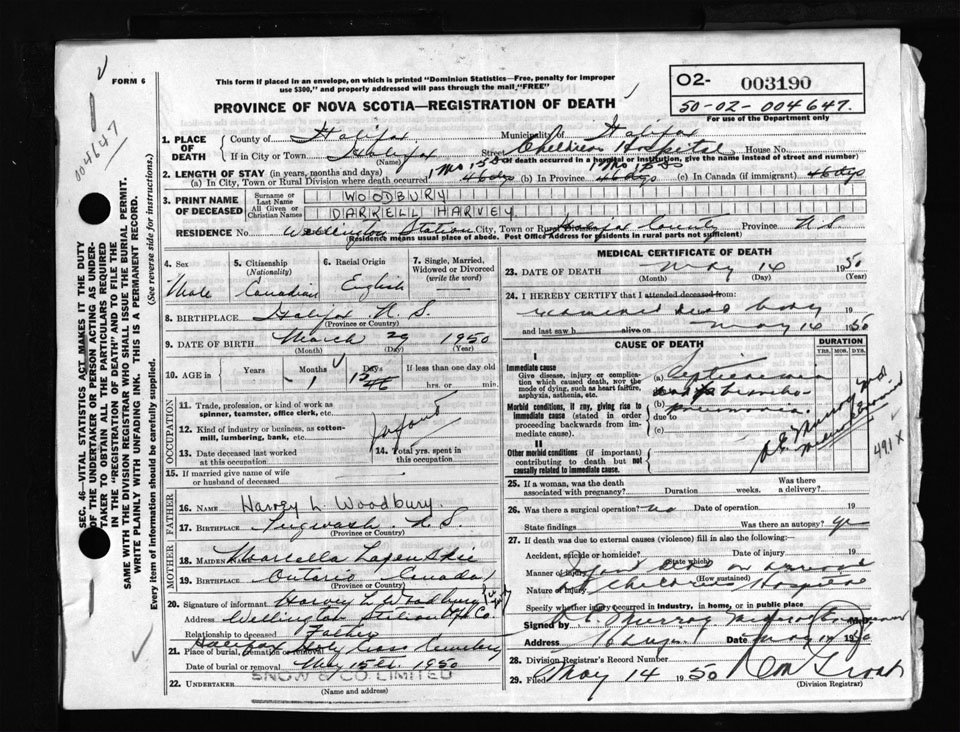 FORM 6
This form if placed in an envelope, on which is printed "Dominion Statistics—Free, penalty for improper
use $300," and properly addressed will pass through the mail, "FREE"
PROVINCE OF NOVA SCOTIA—REGISTRATION OF DEATH
O2- 003190
50-02-004647.
For use of the Department only
004647
SEC. 46—VITAL STATISTICS ACT MAKES IT THE DUTY
OF THE UNDERTAKER OR PERSON ACTING AS UNDER-
TAKER TO OBTAIN ALL THE PARTICULARS REQUIRED
IN THE "REGISTRATION OF DEATH" AND TO FILE THE
SAME WITH THE DIVISION REGISTRAR WHO SHALL ISSUE THE BURIAL PERMIT.
WRITE PLAINLY WITH UNFADING INK. THIS IS A PERMANENT RECORD.
Every item of information should be carefully supplied. (See reverse side for instructions.)
1. PLACE OF DEATH County of Halifax Municipality of Halifax
If in City or Town Halifax (Name) Street Children Hospital House No.
(If death occurred in a hospital or institution, give the name instead of street and number)
2. LENGTH OF STAY (in years, months and days) 1 Mo 15 Ds 1 Mo 15 Ds
(a) In City, Town or Rural Division where death occurred 46 dys (b) In Province 46 dys (c) In Canada (if immigrant) 46 dys
3. PRINT NAME OF DECEASED
Surname or Last Name WOODBURY
All Given or Christian Names DARRELL HARVEY.
RESIDENCE No. Wellington Station City, Town or Rural Halifax County Province N.S.
(Residence means usual place of abode. Post Office Address for residents in rural parts not sufficient)
4. Sex Male
5. Citizenship (Nationality) Canadian
6. Racial Origin English
7. Single, Married, Widowed or Divorced (write the word) —
8. BIRTHPLACE Halifax N.S.
(Province or Country)
9. DATE OF BIRTH March 29 1950
(Month) (Day) (Year)
10. AGE in Years Months 1 Days 15 46 If less than one day old
hrs. or min.
OCCUPATION
11. Trade, profession, or kind of work as
spinner, teamster, office clerk, etc.
12. Kind of industry or business, as cotton-
mill, lumbering, bank, etc.
Infant
13. Date deceased last worked
at this occupation
14. Total yrs. spent in
this occupation
15. If married give name of wife
or husband of deceased
FATHER
16. Name Harvey L. Woodbury.
17. Birthplace Pugwash N.S.
(Province or Country)
MOTHER
18. Maiden Name Marcella
19. Birthplace Ontario Canada
(Province or Country)
20. Signature of informant Harvey L Woodbury
Address Wellington Station Hfx Co.
Relationship to deceased Father
21. Place of burial, cremation or removal Halifax Holy Cross Cemetery
Date of burial or removal May 15th. 1950
22. UNDERTAKER SNOW & CO. LIMITED
(Name and address)
MEDICAL CERTIFICATE OF DEATH
23. DATE OF DEATH May 14 1950
(Month) (Day) (Year)
24. I HEREBY CERTIFY that I attended deceased from
examined dead body 19
and last saw h alive on May 14 1950
CAUSE OF DEATH
DURATION
YRS. MOS. DYS.
I
Immediate cause
Give disease, injury or compli-
cation which caused death, not the
mode of dying, such as heart failure,
asphyxia, asthenia, etc.
(a) Septicaemia
Morbid conditions, if any, giving rise to
immediate cause (stated in order
proceeding backwards from im-
mediate cause).
(b) due to broncho
pneumonia.
(c)
II
Other morbid conditions (if important)
contributing to death but not
causally related to immediate cause.
491 X
25. If a woman, was the death
associated with pregnancy? Duration weeks. Was there
a delivery?
26. Was there a surgical operation? no Date of operation 19
State findings Was there an autopsy? yes
27. If death was due to external causes (violence) fill in also the following:
Accident, suicide or homicide? (State which) Date of injury 19
Manner of injury Infant dead on arrival
(How sustained)
Nature of injury at Childrens Hospital
Specify whether injury occurred in industry, in home, or in public place
Signed by R. E. Murray
Address Date May 14 1950
28. Division Registrar's Record Number
29. Filed May 14 1950
(Division Registrar)